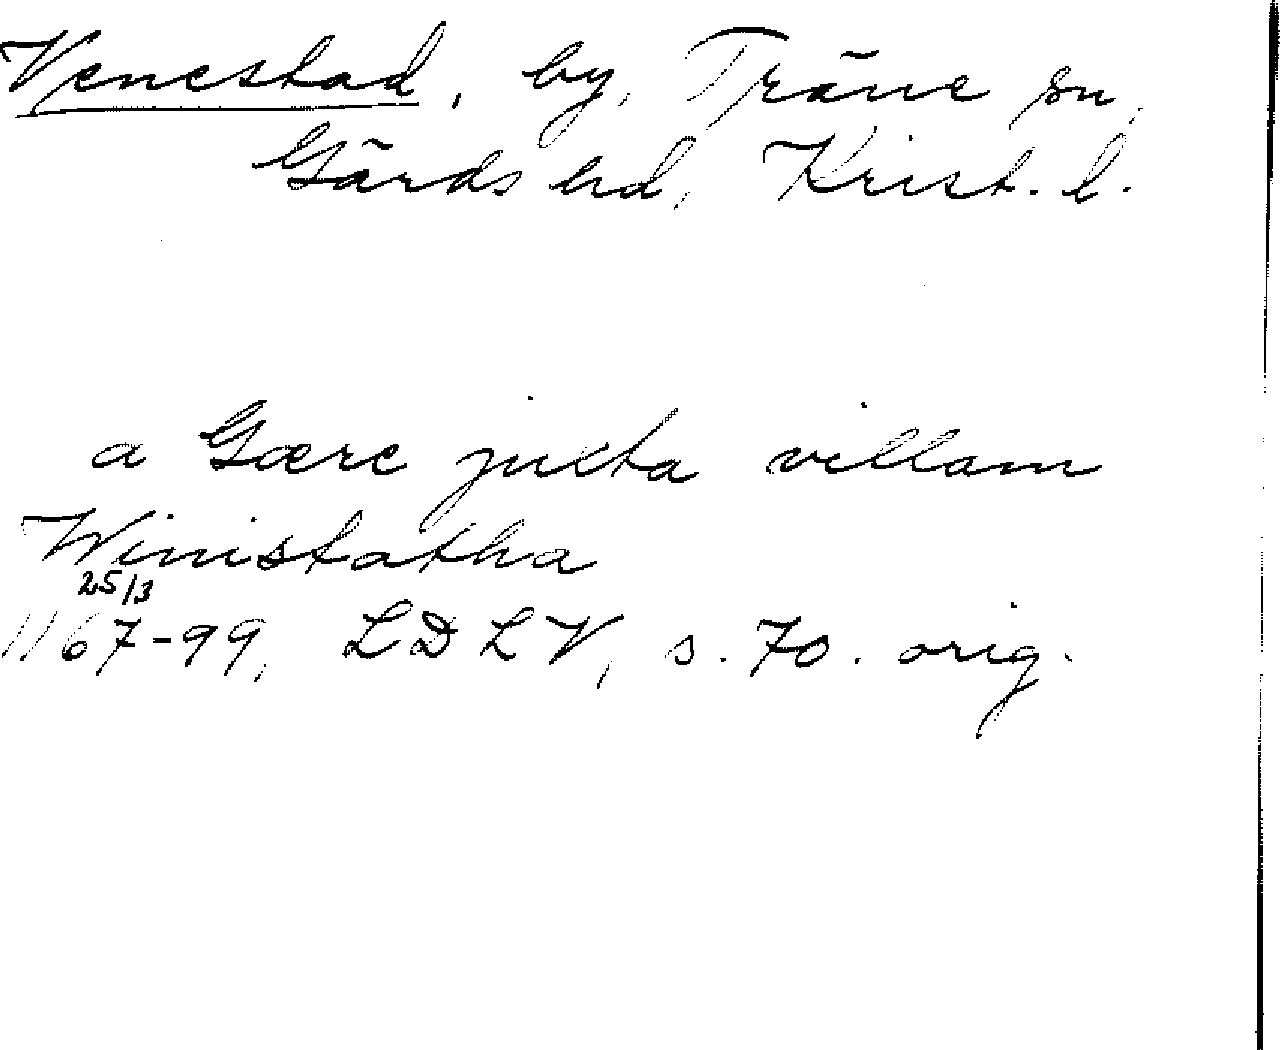 Venestad, by, Träne sn,
Gärds hd, Krist. l.
a Gære juxta villam
Winistatha
25/3
1167-99, LDLV, s. 70. orig.